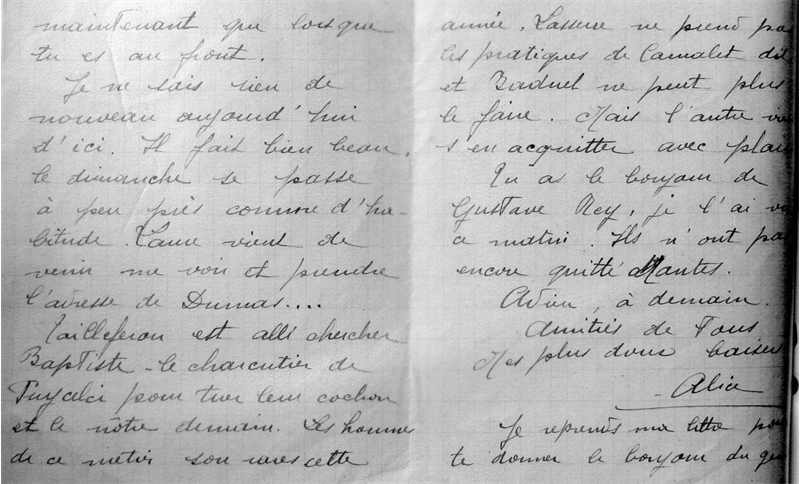 maintenant que lorsque
tu es au front.
Je ne sais rien de
nouveau aujourd'hui
d'ici. Il fait bien beau,
le dimanche se passe
à peu près comme d'ha-
bitude. Laure vient de
venir me voir et prendre
l'adresse de Dumas....
Tailleferon est allé chercher
Baptiste - le charcutier de
Puycalci pour tuer leur cochon
et le nôtre demain. Les hommes
de ce métier son rares cette
année. Lasserre ne prend pa
les pratiques de Camalet dit
et Baduel ne peut plus
le faire. Mais l'autre va
s'en acquitter avec plai
Tu as le bonjour de
Gustave Rey, je l'ai vu
ce matin. Ils n'ont pa
encore quitté Nantes.
Adieu, à demain.
Amitiés de Tous
Mes plus doux baisers
- Alia
Je reprends ma lettre pou
te donner le bonjour du